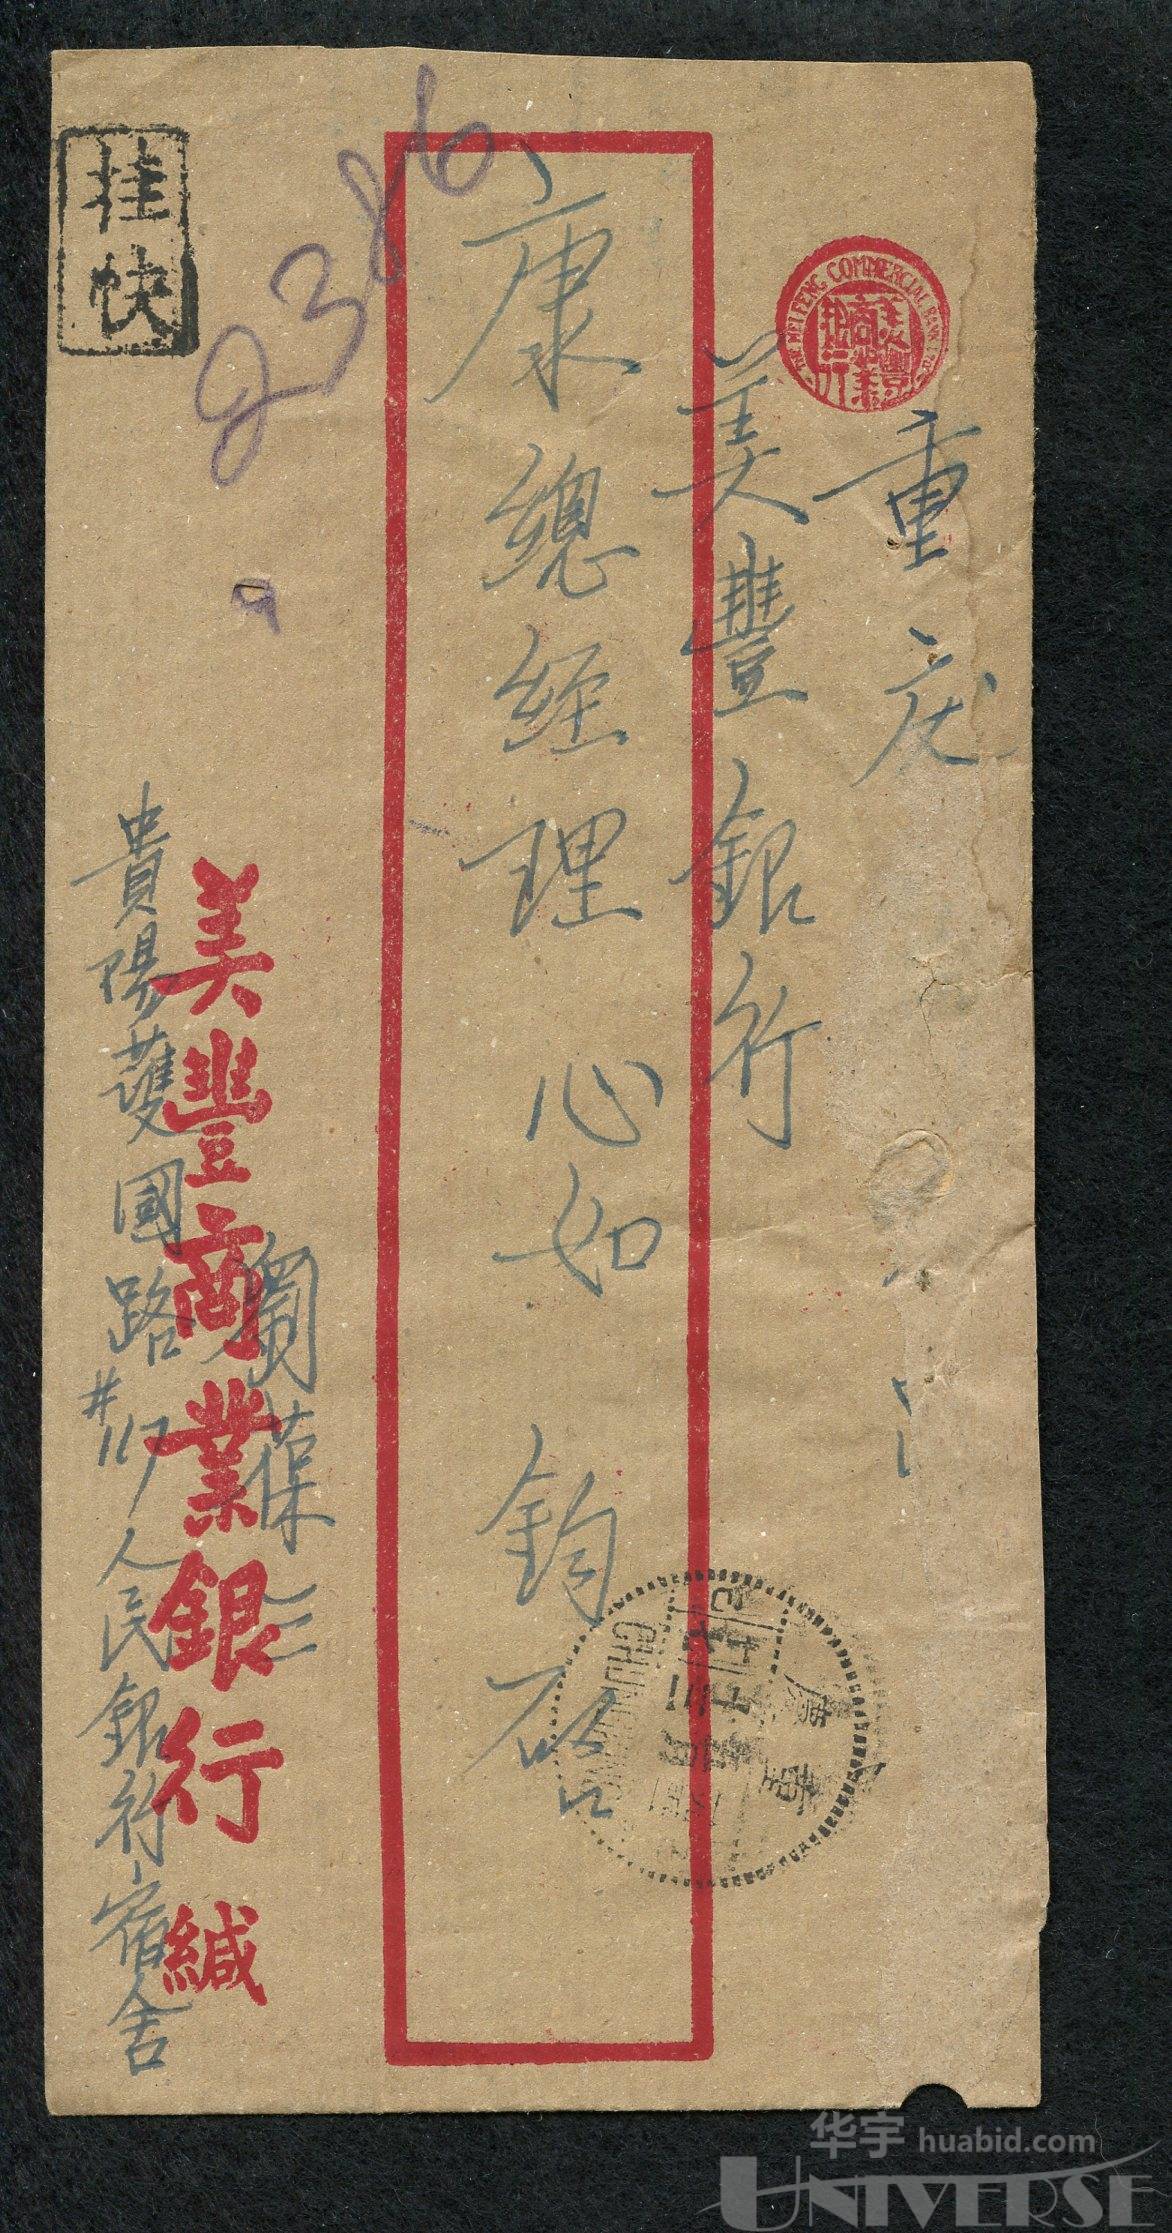 重庆
THE MEI FENG COMMERCIAL BANK LTD.
美豐
商業
銀行
美豐銀行
康總經理 心如 鈞啟
2386
挂快
美豐商業銀行 緘
貴陽護國路#117人民銀行宿舍
重慶
CHUNGKING
华宇 huabid.com
UNIVERSE